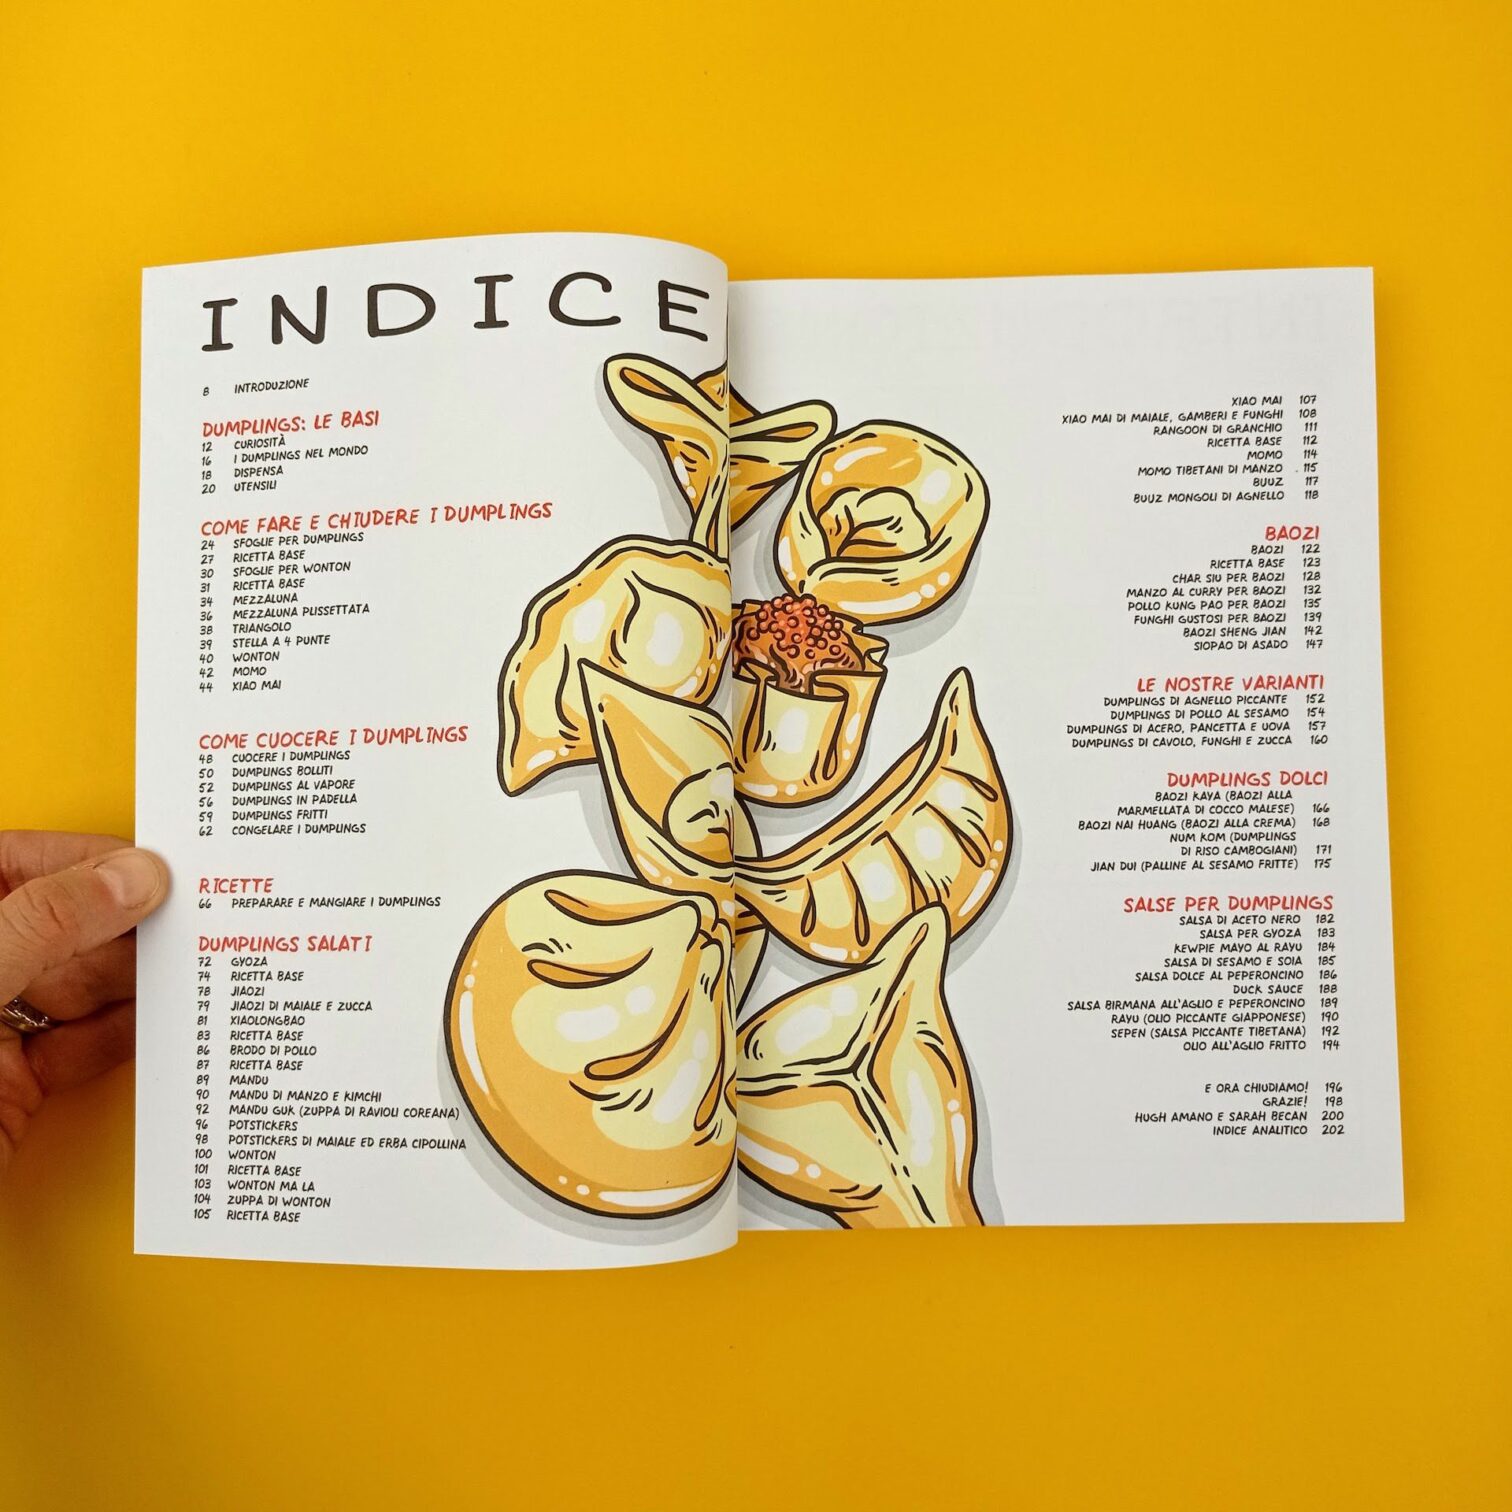 INDICE
8 INTRODUZIONE
DUMPLINGS: LE BASI
12 CURIOSITÀ
16 I DUMPLINGS NEL MONDO
18 DISPENSA
20 UTENSILI
COME FARE E CHIUDERE I DUMPLINGS
24 SFOGLIE PER DUMPLINGS
27 RICETTA BASE
30 SFOGLIE PER WONTON
31 RICETTA BASE
34 MEZZALUNA
36 MEZZALUNA PLISSETTATA
38 TRIANGOLO
39 STELLA A 4 PUNTE
40 WONTON
42 MOMO
44 XIAO MAI
COME CUOCERE I DUMPLINGS
48 CUOCERE I DUMPLINGS
50 DUMPLINGS BOLLITI
52 DUMPLINGS AL VAPORE
56 DUMPLINGS IN PADELLA
59 DUMPLINGS FRITTI
62 CONGELARE I DUMPLINGS
RICETTE
66 PREPARARE E MANGIARE I DUMPLINGS
DUMPLINGS SALATI
72 GYOZA
74 RICETTA BASE
78 JIAOZI
79 JIAOZI DI MAIALE E ZUCCA
81 XIAOLONGBAO
83 RICETTA BASE
86 BRODO DI POLLO
87 RICETTA BASE
89 MANDU
90 MANDU DI MANZO E KIMCHI
92 MANDU GUK (ZUPPA DI RAVIOLI COREANA)
96 POTSTICKERS
98 POTSTICKERS DI MAIALE ED ERBA CIPOLLINA
100 WONTON
101 RICETTA BASE
103 WONTON MA LA
104 ZUPPA DI WONTON
105 RICETTA BASE
XIAO MAI 107
XIAO MAI DI MAIALE, GAMBERI E FUNGHI 108
RANGOON DI GRANCHIO 111
RICETTA BASE 112
MOMO 114
MOMO TIBETANI DI MANZO 115
BUUZ 117
BUUZ MONGOLI DI AGNELLO 118
BAOZI
BAOZI 122
RICETTA BASE 123
CHAR SIU PER BAOZI 128
MANZO AL CURRY PER BAOZI 132
POLLO KUNG PAO PER BAOZI 135
FUNGHI GUSTOSI PER BAOZI 139
BAOZI SHENG JIAN 142
SIOPAO DI ASADO 147
LE NOSTRE VARIANTI
DUMPLINGS DI AGNELLO PICCANTE 152
DUMPLINGS DI POLLO AL SESAMO 154
DUMPLINGS DI ACERO, PANCETTA E UOVA 157
DUMPLINGS DI CAVOLO, FUNGHI E ZUCCA 160
DUMPLINGS DOLCI
BAOZI KAYA (BAOZI ALLA
MARMELLATA DI COCCO MALESE) 166
BAOZI NAI HUANG (BAOZI ALLA CREMA) 168
NUM KOM (DUMPLINGS
DI RISO CAMBOGIANI) 171
JIAN DUI (PALLINE AL SESAMO FRITTE) 175
SALSE PER DUMPLINGS
SALSA DI ACETO NERO 182
SALSA PER GYOZA 183
KEWPIE MAYO AL RAYU 184
SALSA DI SESAMO E SOIA 185
SALSA DOLCE AL PEPERONCINO 186
DUCK SAUCE 188
SALSA BIRMANA ALL'AGLIO E PEPERONCINO 189
RAYU (OLIO PICCANTE GIAPPONESE) 190
SEPEN (SALSA PICCANTE TIBETANA) 192
OLIO ALL'AGLIO FRITTO 194
E ORA CHIUDIAMO! 196
GRAZIE! 198
HUGH AMANO E SARAH BECAN 200
INDICE ANALITICO 202